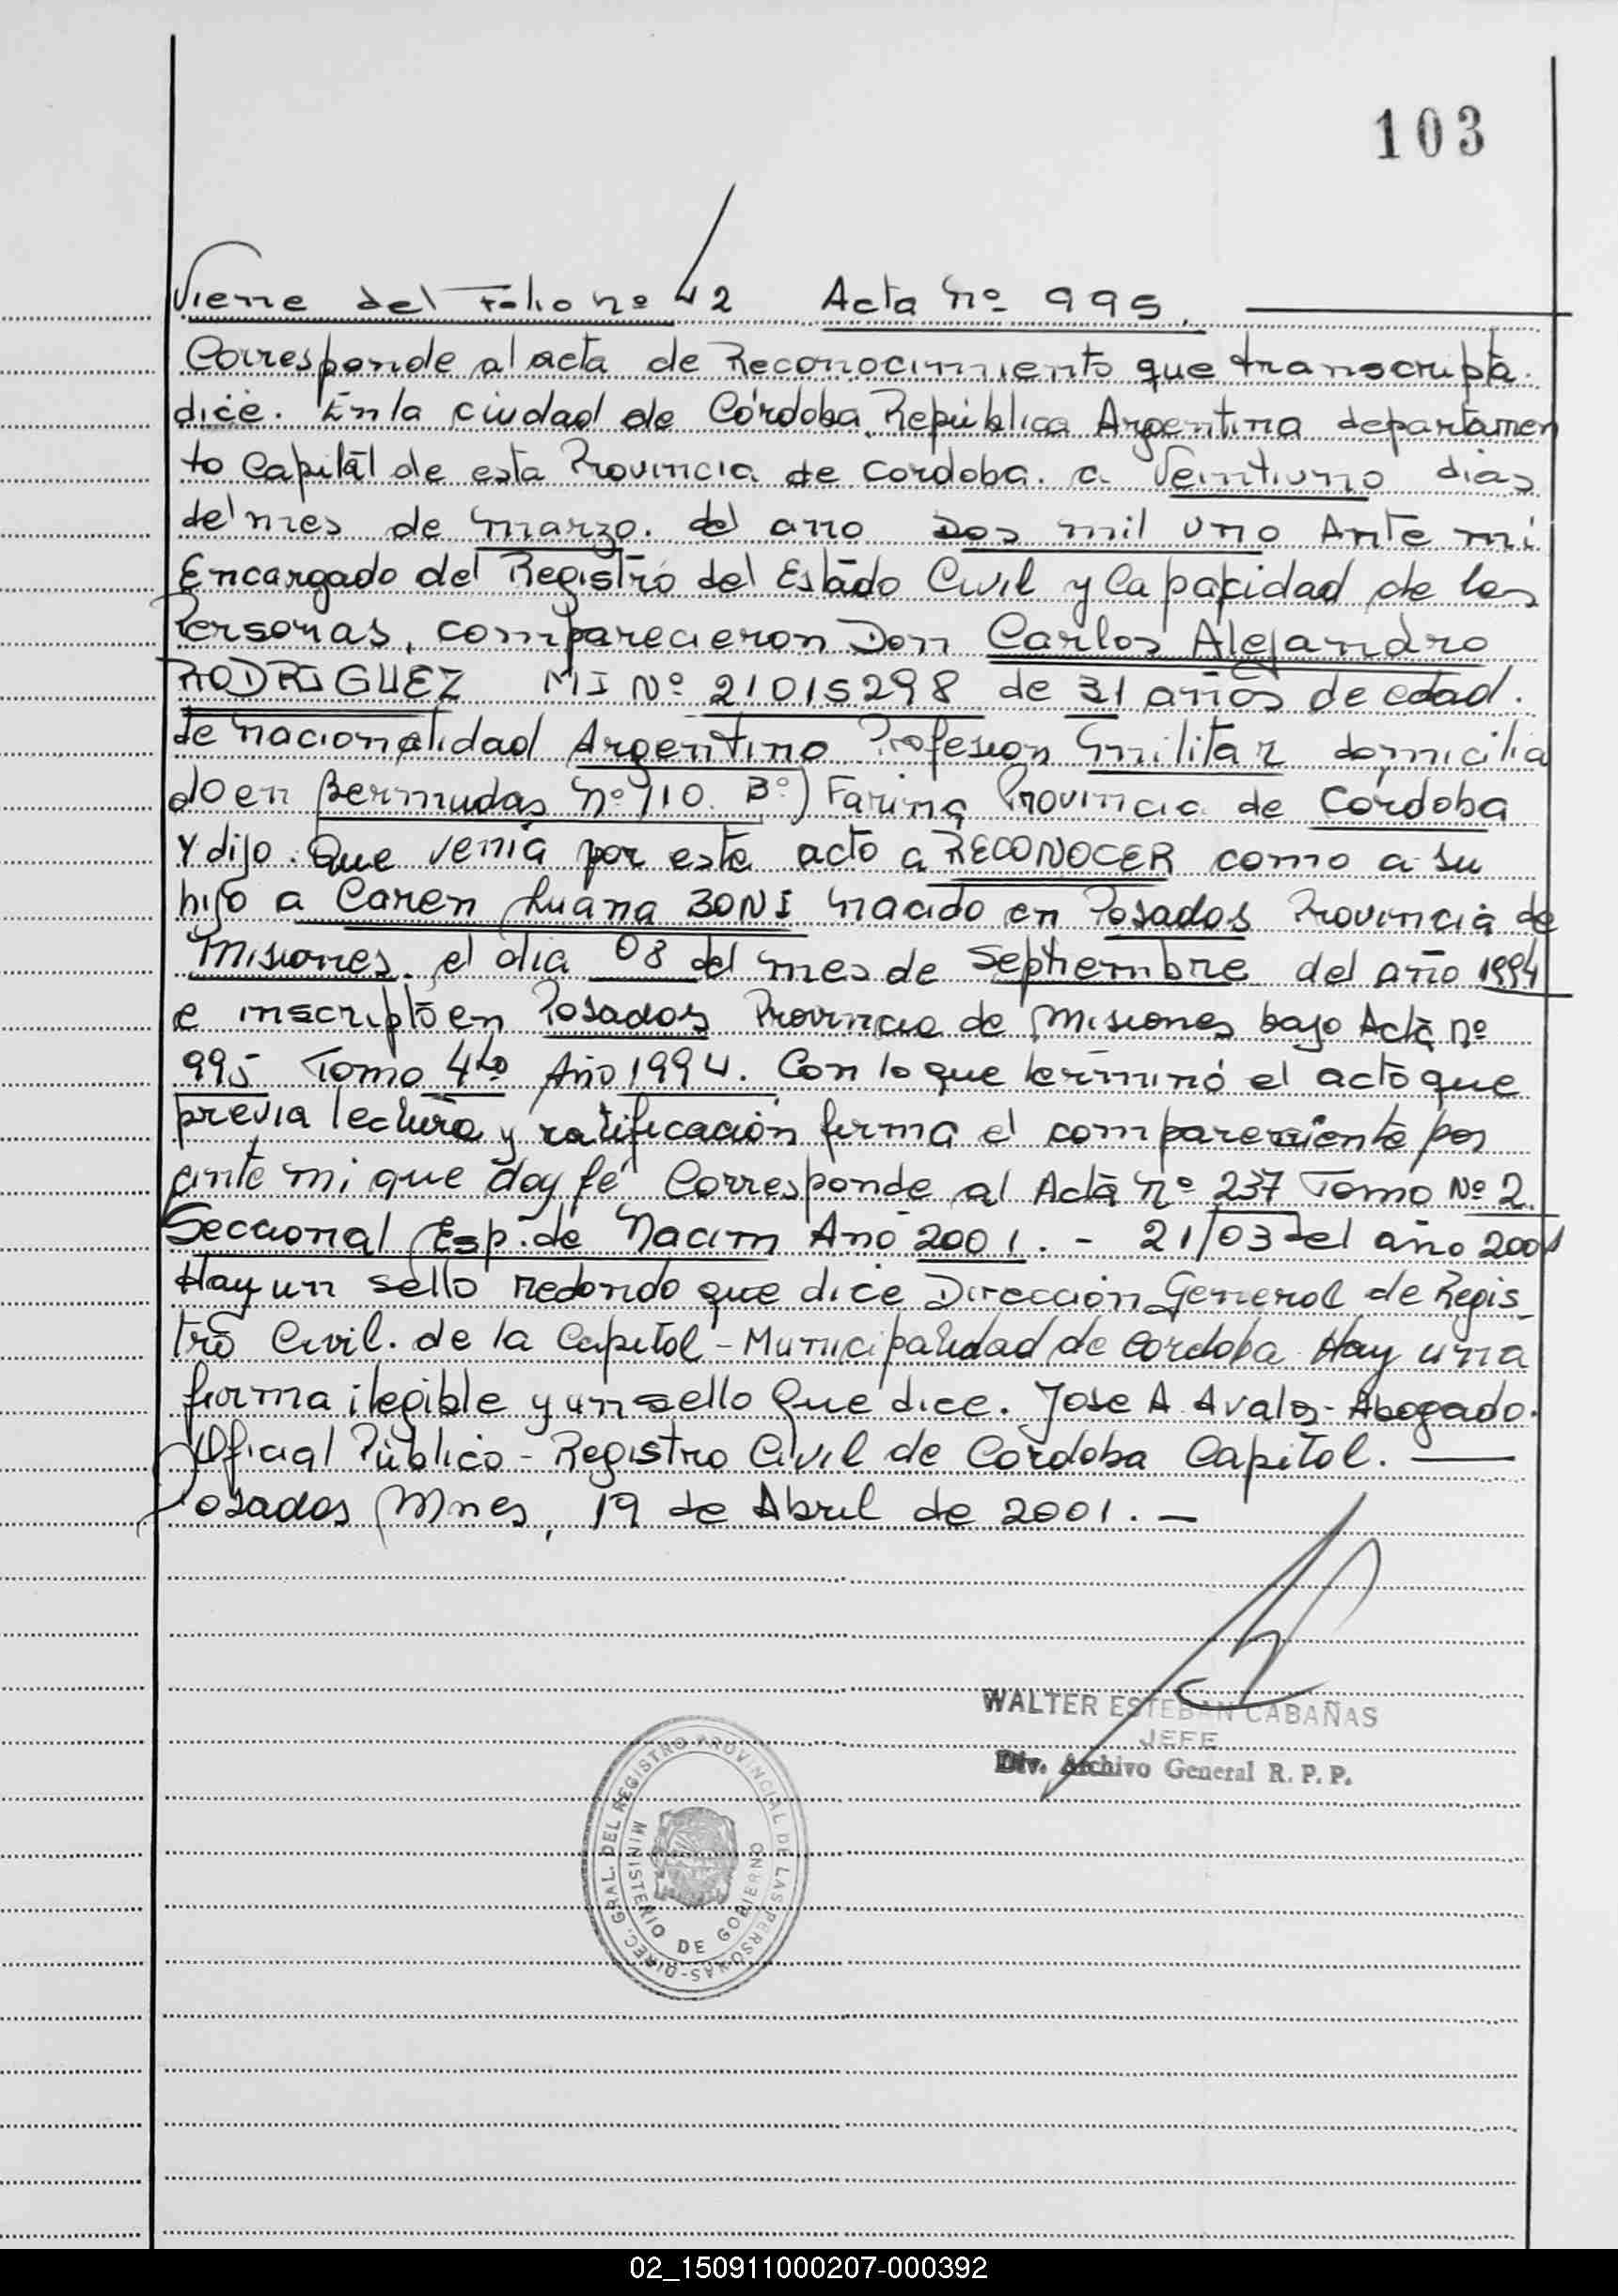 103
Viene del Folio Nº 42 Acta Nº 995.
Corresponde al acta de Reconocimiento que transcripta
dice. En la ciudad de Córdoba, República Argentina departamen
to Capital de esta Provincia de Cordoba. a Veintiuno dias
del mes de Marzo. del ano Dos mil uno Ante mi
Encargado del Registro del Estado Civil y Capacidad de las
Personas, comparecieron Don Carlos Alejandro
RODRIGUEZ MI Nº 21015298 de 31 años de edad.
de nacionalidad Argentino Profesion Militar domicilia
do en Bermudas Nº 110. Bº) Farina Provincia de Cordoba
Y dijo. Que venia por este acto a RECONOCER como a su
hijo a Caren Luana BONI Nacido en Posadas Provincia de
Misiones. el dia 08 del mes de Septiembre del año 1994
e inscripto en Posadas Provincia de Misiones bajo Acta nº
995 Tomo 4to Año 1994. Con lo que terminó el acto que
previa lectura y ratificación firma el compareciente por
ante mi que doy fé Corresponde al Acta Nº 237 Tomo Nº 2
Seccional Esp. de Nacim Ano 2001. - 21/03 del año 2001
Hay un sello redondo que dice Dirección General de Regis_
tro Civil. de la Capital - Municipalidad de Cordoba Hay una
firma ilegible y un sello Que dice. Jose A Avalos - Abogado.
Oficial Público - Registro Civil de Cordoba Capital.
Posadas Mnes, 19 de Abril de 2001. -
WALTER ESTEBAN CABAÑAS
JEFE
Div. Archivo General R. P. P.
DIREC. GRAL. DEL REGISTRO PROVINCIAL DE LAS PERSONAS-
MINISTERIO DE GOBIERNO
02_150911000207-000392